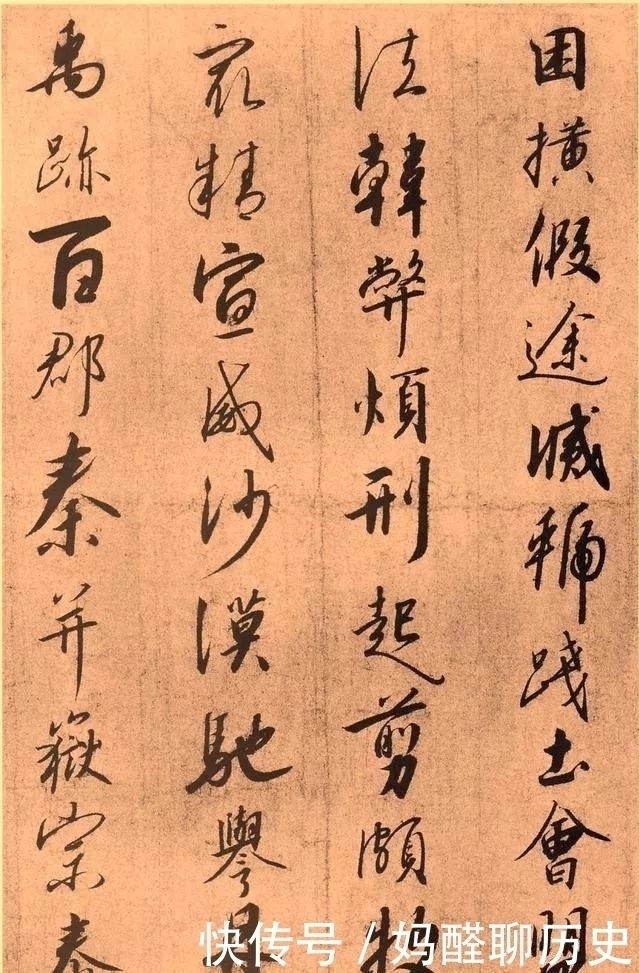 困橫假途滅虢踐土會盟
法韓弊煩刑起剪頗牧
最精宣威沙漠馳譽丹
禹跡百郡秦并嶽宗泰
快传号 / 妈醛聊历史